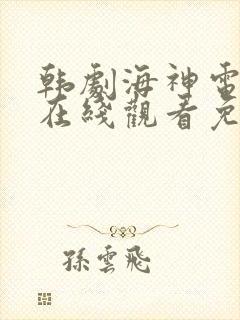 韩劇海神電
在綫觀看免
孫雲飛